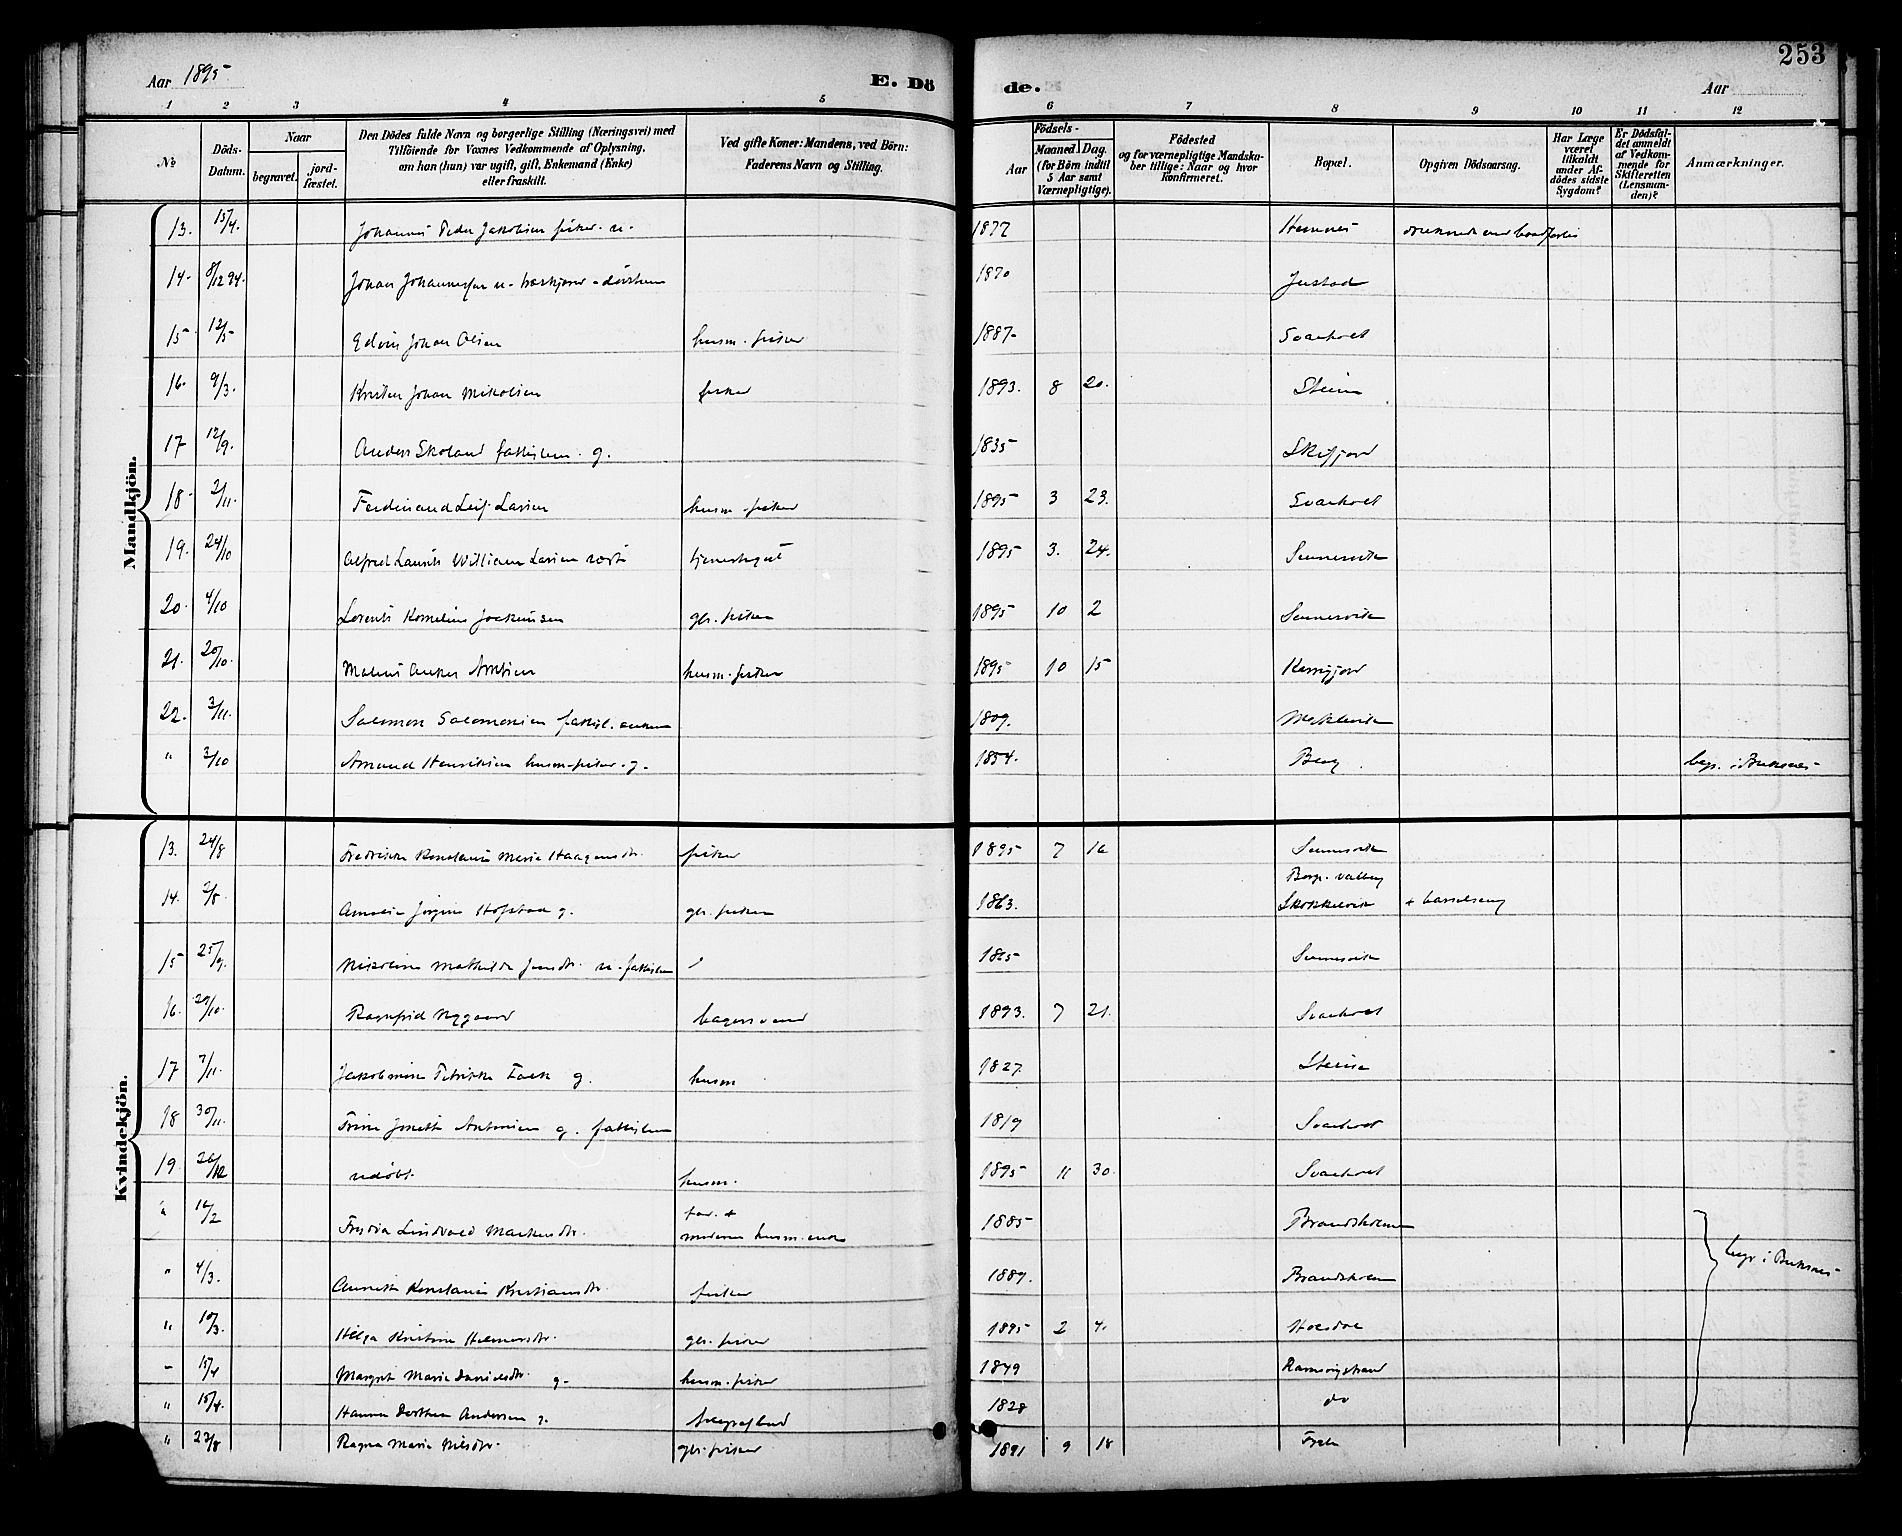 Aar 1895
E. Dö
de.
Aar
253
1 2 3 4 5 6 7 8 9 10 11 12
No
Döds-
Datum.
Naar
begravet.
jord-
fæstet.
Den Dödes fulde Navn og borgerlige Stilling (Næringsvei) med
Tilföiende for Voxnes Vedkommende af Oplysning,
om han (hun) var ugift, gift, Enkemand (Enke)
eller fraskilt.
Ved gifte Koner: Mandens, ved Börn:
Faderens Navn og Stilling.
Födsels-
Aar
Maaned. Dag.
(for Börn indtil
5 Aar samt
Værnepligtige).
Födested
og for værnepligtige Mandska-
ber tillige: Naar og hvor
konfirmeret.
Bopæl.
Opgiven Dödsaarsag.
Har Læge
været
tilkaldt
under Af-
dödes sidste
Sygdom?
Er Dödsfal-
det anmeldt
af Vedkom-
mende for
Skifteretten
(Lensman-
den)?
Anmærkninger.
Mandkjön.
13. 15/4. Johannes Peder Jakobsen fisker. u. 1877 Hemnes
14. 8/12 94. Johan Johannessen u. 1870 Justad
15 12/5. Edvin Johan Olsen husm. fisker 1887. Svarholt
16. 9/3. Kristen Johan Mikalsen fisker 1893. 8 20. Steine
17 12/9. Anders Skoland fattiglem. g. 1835 Skifjord
18. 2/11. Ferdinand Leif Larsen husm. fisker 1895 3 23. Svarholt
19. 24/10 Alfred Laurits William Larsen 1895 3. 24. Sennesvik
20. 4/10 Lorents Kornelius Joakimsen gbr. fisker 1895 10 2 Sennesvik
21. 20/10. husm. fisker 1895 10 15
22. 3/11. Salomon Salomonsen fattigl. enkem 1809.
" 3/10 Amund Henriksen husm. fisker. g. 1854. Berg begr. i Buksnes
Kvindekjön.
13. 24/8 Fredrikke Konstanse Marie Haagensdtr. fisker 1895 7 16 Sennesvik
14. 2/8. Amalie Jørgine Hofstad g. gbr. fisker 1863. Borge. Valberg
Skokkelvik + barselseng
15 25/9. Nikoline Mathilde Jensdtr. u. fattiglem Sennesvik
16. 29/10. Ragnfrid Nygaard bagersvend 1893. 7 21. Svarholt
17 7/11. Jakobine Petrikke Falk g. husm 1827. Steine
18 30/11. Trine Jonette Antonsen g. fattiglem 1819 Svarholt
19. 26/12 udøbt. husm. 1895 11 30. Svarholt
" 16/2 Lindvald Markusdtr. far. +
moderen husm. enke 1885 Brandsholmen
" 4/3. Annette Konstanse Kristiansdtr. fisker 1889. Brandsholmen begr. i Buksnes
" 10/3. Helga Kristine Helmersdtr. gbr. fisker 1895 2 4. Holsdal
" 15/4 Margrit Marie Danielsdtr. g. husm. fisker 1849 Ramsvigstrand
" 15/4. Hanna Dorthea Andersen g. 1828 do
" 23/8 Ragna Marie Nilsdtr. gbr. fisker 1891 9 18